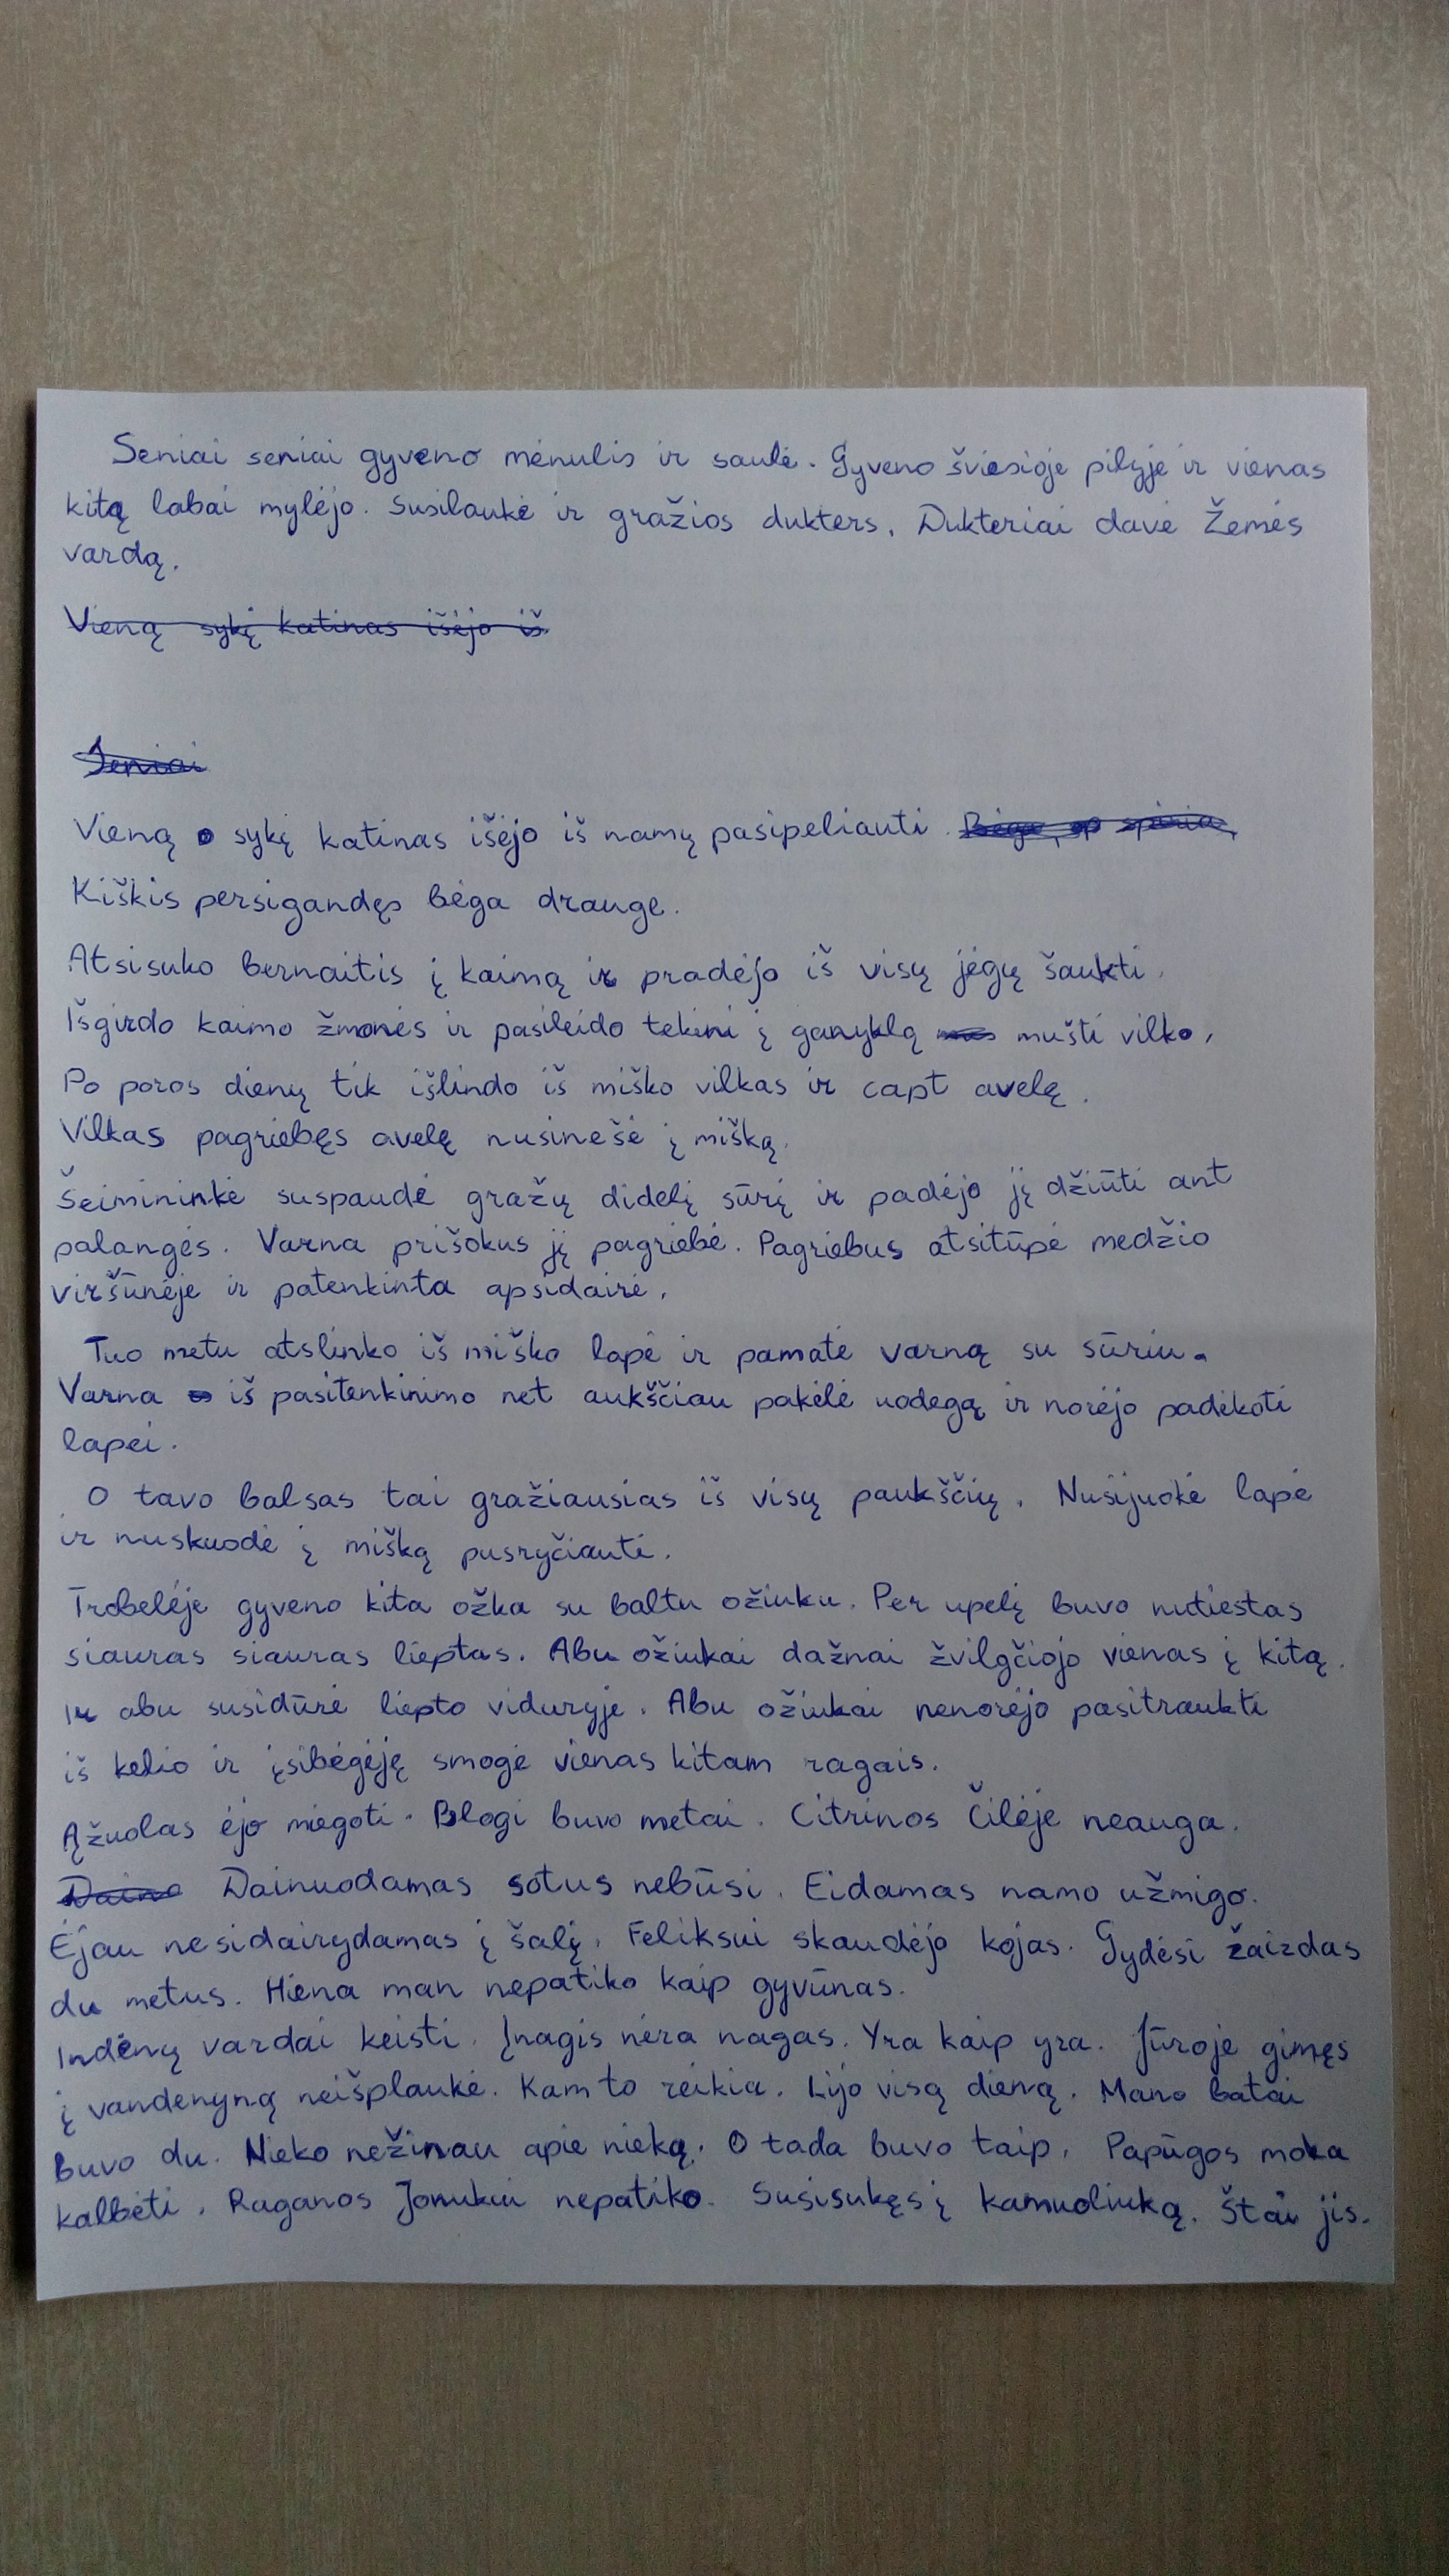 Seniai seniai gyveno mėnulis ir saulė. Gyveno šviesioje pilyje ir vienas
kitą labai mylėjo. Susilaukė ir gražios dukters. Dukteriai davė Žemės
vardą.
Vieną sykį katinas išėjo iš
Seniai
Vieną sykį katinas išėjo iš namų pasipeliauti.
Kiškis persigandęs bėga drauge.
Atsisuko bernaitis į kaimą ir pradėjo iš visų jėgų šaukti.
Išgirdo kaimo žmonės ir pasileido tekini į ganyklą mušti vilko.
Po poros dienų tik išlindo iš miško vilkas ir capt avelę.
Vilkas pagriebęs avelę nusinešė į mišką.
Šeimininkė suspaudė gražų didelį sūrį ir padėjo jį džiūti ant
palangės. Varna prišokus jį pagriebė. Pagriebus atsitūpė medžio
viršūnėje ir patenkinta apsidairė.
Tuo metu atslinko iš miško lapė ir pamatė varną su sūriu.
Varna iš pasitenkinimo net aukščiau pakėlė uodegą ir norėjo padėkoti
lapei.
O tavo balsas tai gražiausias iš visų paukščių. Nusijuokė lapė
ir nuskuodė į mišką pusryčiauti.
Trobelėje gyveno kita ožka su baltu ožiuku. Per upelį buvo nutiestas
siauras siauras lieptas. Abu ožiukai dažnai žvilgčiojo vienas į kitą.
Ir abu susidūrė liepto viduryje. Abu ožiukai nenorėjo pasitraukti
iš kelio ir įsibėgėję smogė vienas kitam ragais.
Ąžuolas ėjo miegoti. Blogi buvo metai. Citrinos Čilėje neauga.
Daino Dainuodamas sotus nebūsi. Eidamas namo užmigo.
Ėjau nesidairydamas į šalį. Feliksui skaudėjo kojas. Gydėsi žaizdas
du metus. Hiena man nepatiko kaip gyvūnas.
Indėnų vardai keisti. Įnagis nėra nagas. Yra kaip yra. Jūroje gimęs
į vandenyną neišplaukė. Kam to reikia. Lijo visą dieną. Mano batai
buvo du. Nieko nežinau apie nieką. O tada buvo taip. Papūgos moka
kalbėti. Raganos Jonukui nepatiko. Susisukęs į kamuoliuką. Štai jis.